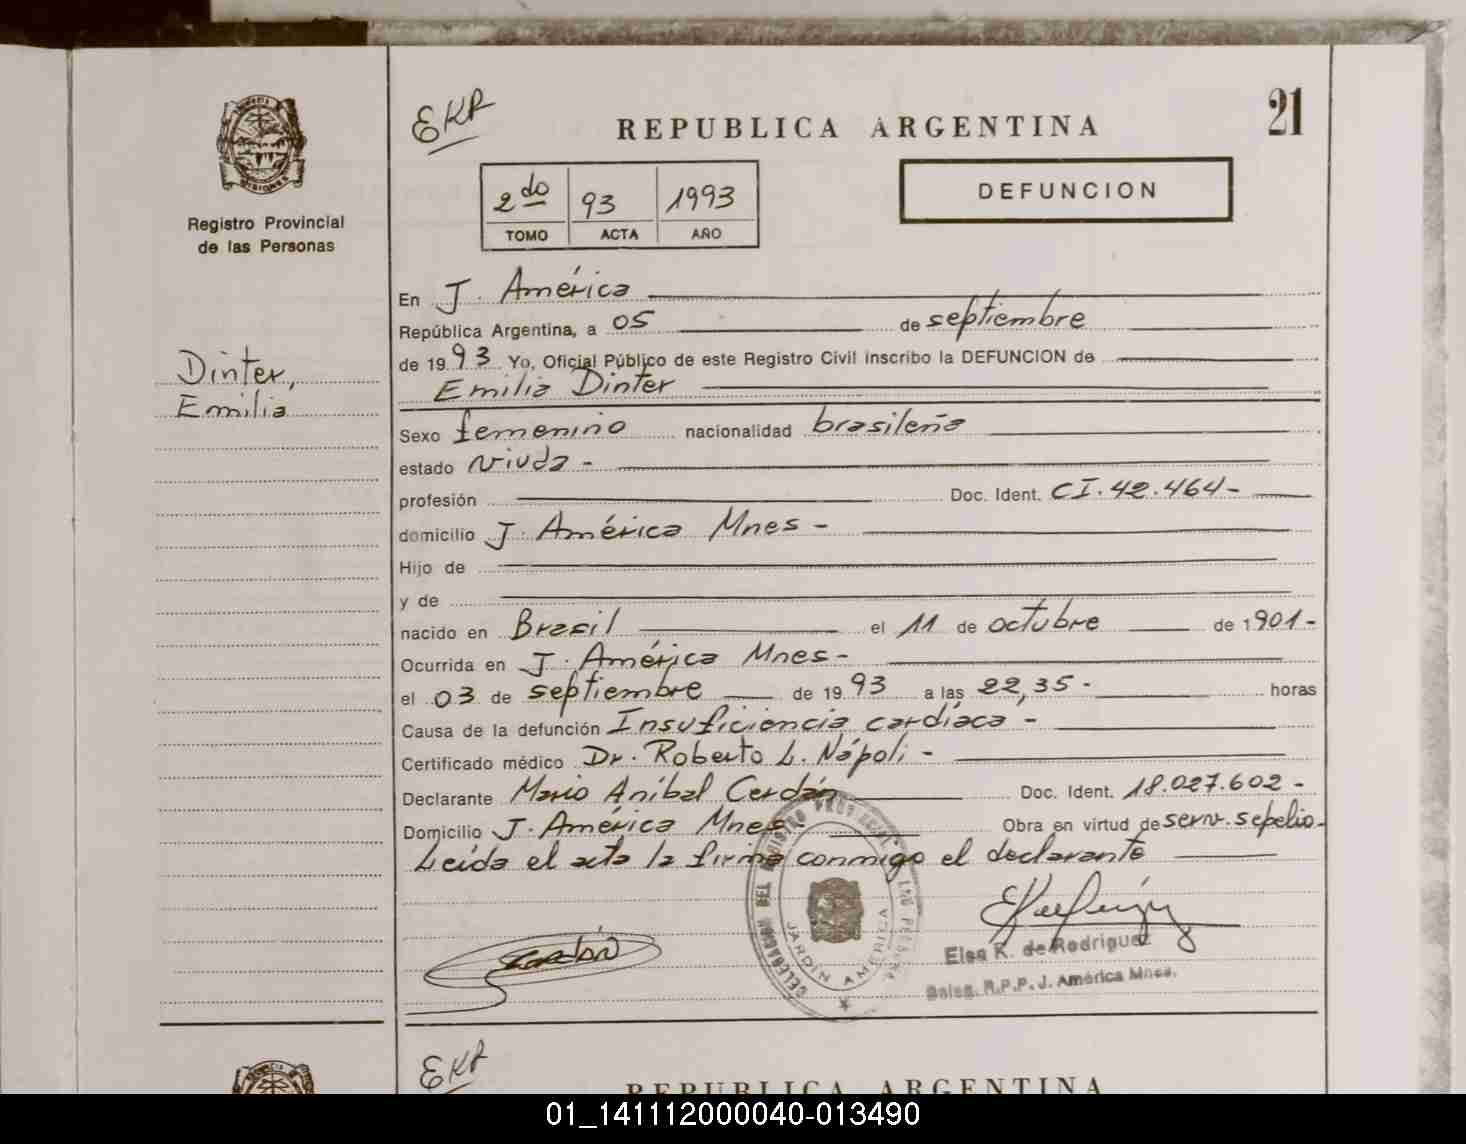 EKR
REPUBLICA ARGENTINA
21
MISIONES
Registro Provincial
de las Personas
2do 93 1993
TOMO ACTA AÑO
DEFUNCION
En J. América
República Argentina, a 05 de septiembre
de 1993 Yo, Oficial Público de este Registro Civil inscribo la DEFUNCION de
Emilia Dinter
Dinter,
Emilia
Sexo femenino nacionalidad brasileña
estado viuda -
profesión Doc. Ident. CI. 42.464 -
domicilio J. América Mnes -
Hijo de
y de
nacido en Brasil el 11 de octubre de 1901 -
Ocurrida en J. América Mnes -
el 03 de septiembre de 1993 a las 22,35 - horas
Causa de la defunción Insuficiencia cardíaca -
Certificado médico Dr. Roberto L. Nápoli -
Declarante Mario Aníbal Cerdán Doc. Ident. 18.027.602 -
Domicilio J. América Mnes - Obra en virtud de serv. sepelio -
Leída el acta la firma conmigo el declarante
DELEGACION DEL REGISTRO PROVINCIAL DE LAS PERSONAS
JARDIN AMERICA
Cerdán
Elsa K. de Rodriguez
Deleg. R.P.P. J. América Mnes.
EKR
REPUBLICA ARGENTINA
01_141112000040-013490